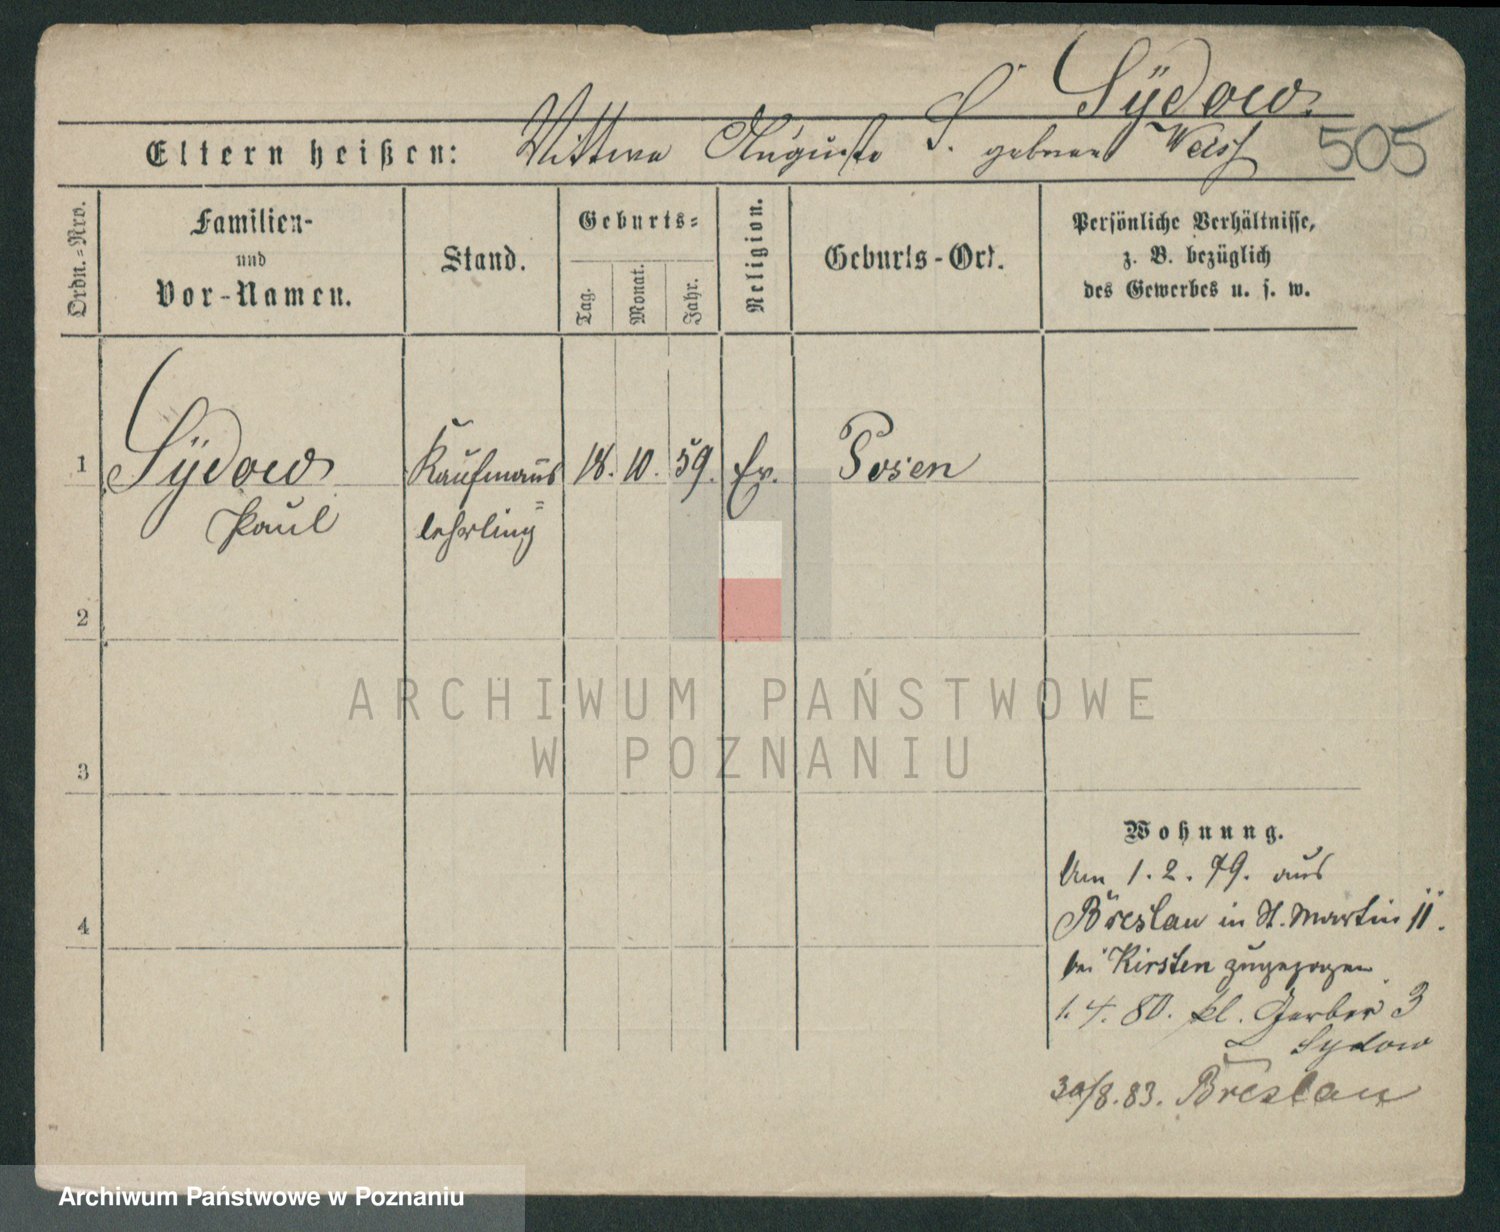 Sÿdow
505
Eltern heißen: Wittwe Auguste S. geborene Weiss
Ordn.-Nro.
Familien- und Vor-Namen.
Stand.
Geburts=
Tag.
Monat.
Jahr.
Religion.
Geburts-Ort.
Persönliche Verhältnisse,
z. B. bezüglich
des Gewerbes u. s. w.
1 Sÿdow Kaufmanns 18. 10. 59. Ev. Posen
Paul lehrling
2
3
4
Wohnung.
Am 1. 2. 79. aus
Breslau in St. Martin 11.
bei Kirsten zugezogen
1. 4. 80. kl. Gerber 3
Sydow
30/8. 83. Breslau
ARCHIWUM PAŃSTWOWE
W POZNANIU
Archiwum Państwowe w Poznaniu